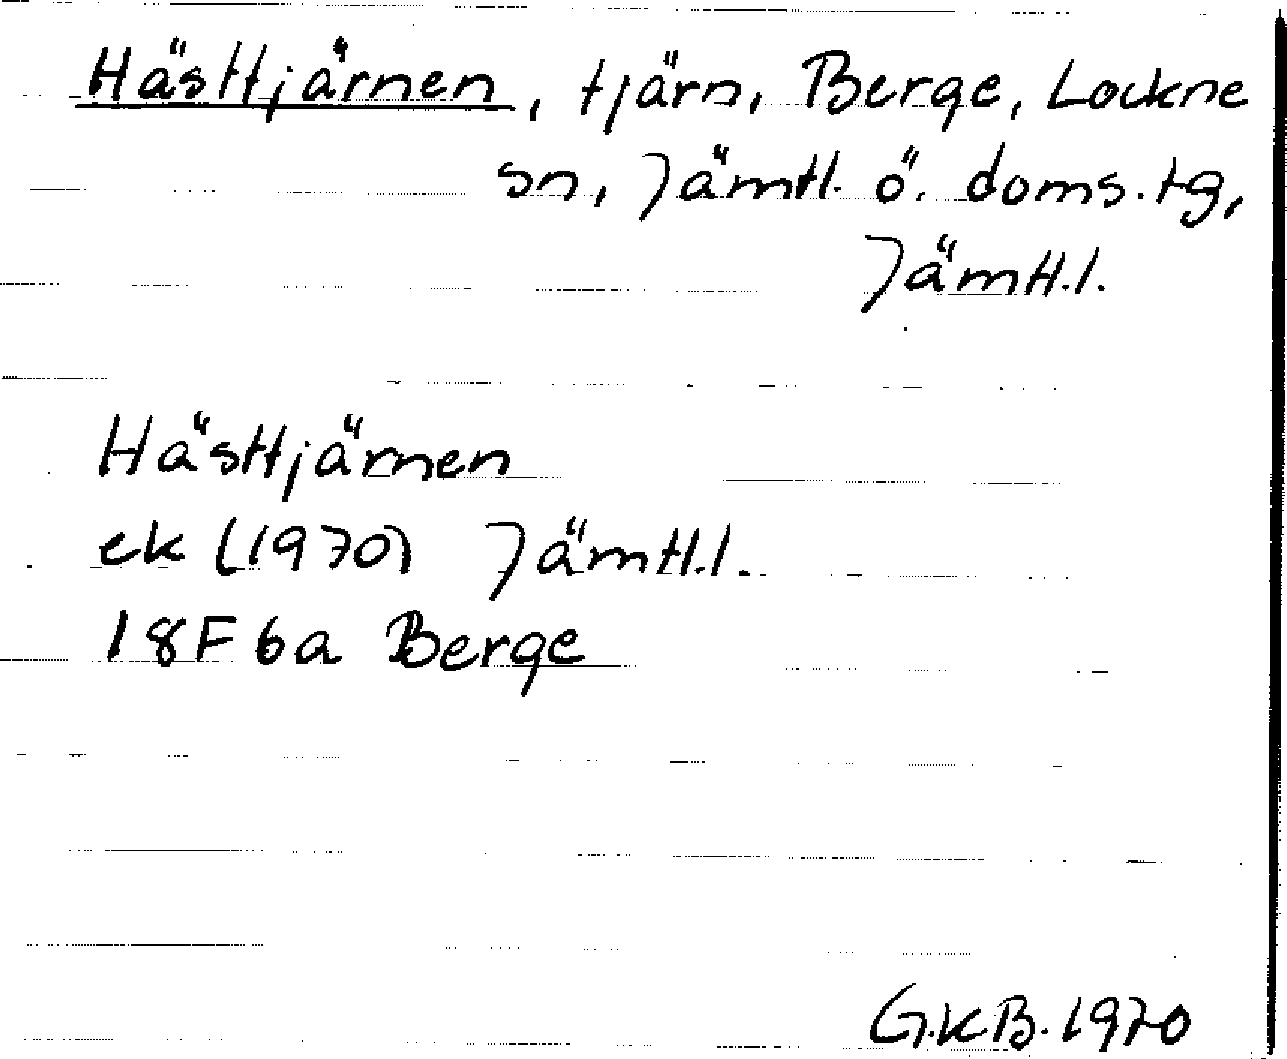 Hästtjärnen, tjärn, Berge, Lockne
sn, Jämtl. ö. doms.tg,
Jämtl.l.
Hästtjärnen
ek (1970) Jämtl.l.
18F 6a Berge
G.K.B. 1970